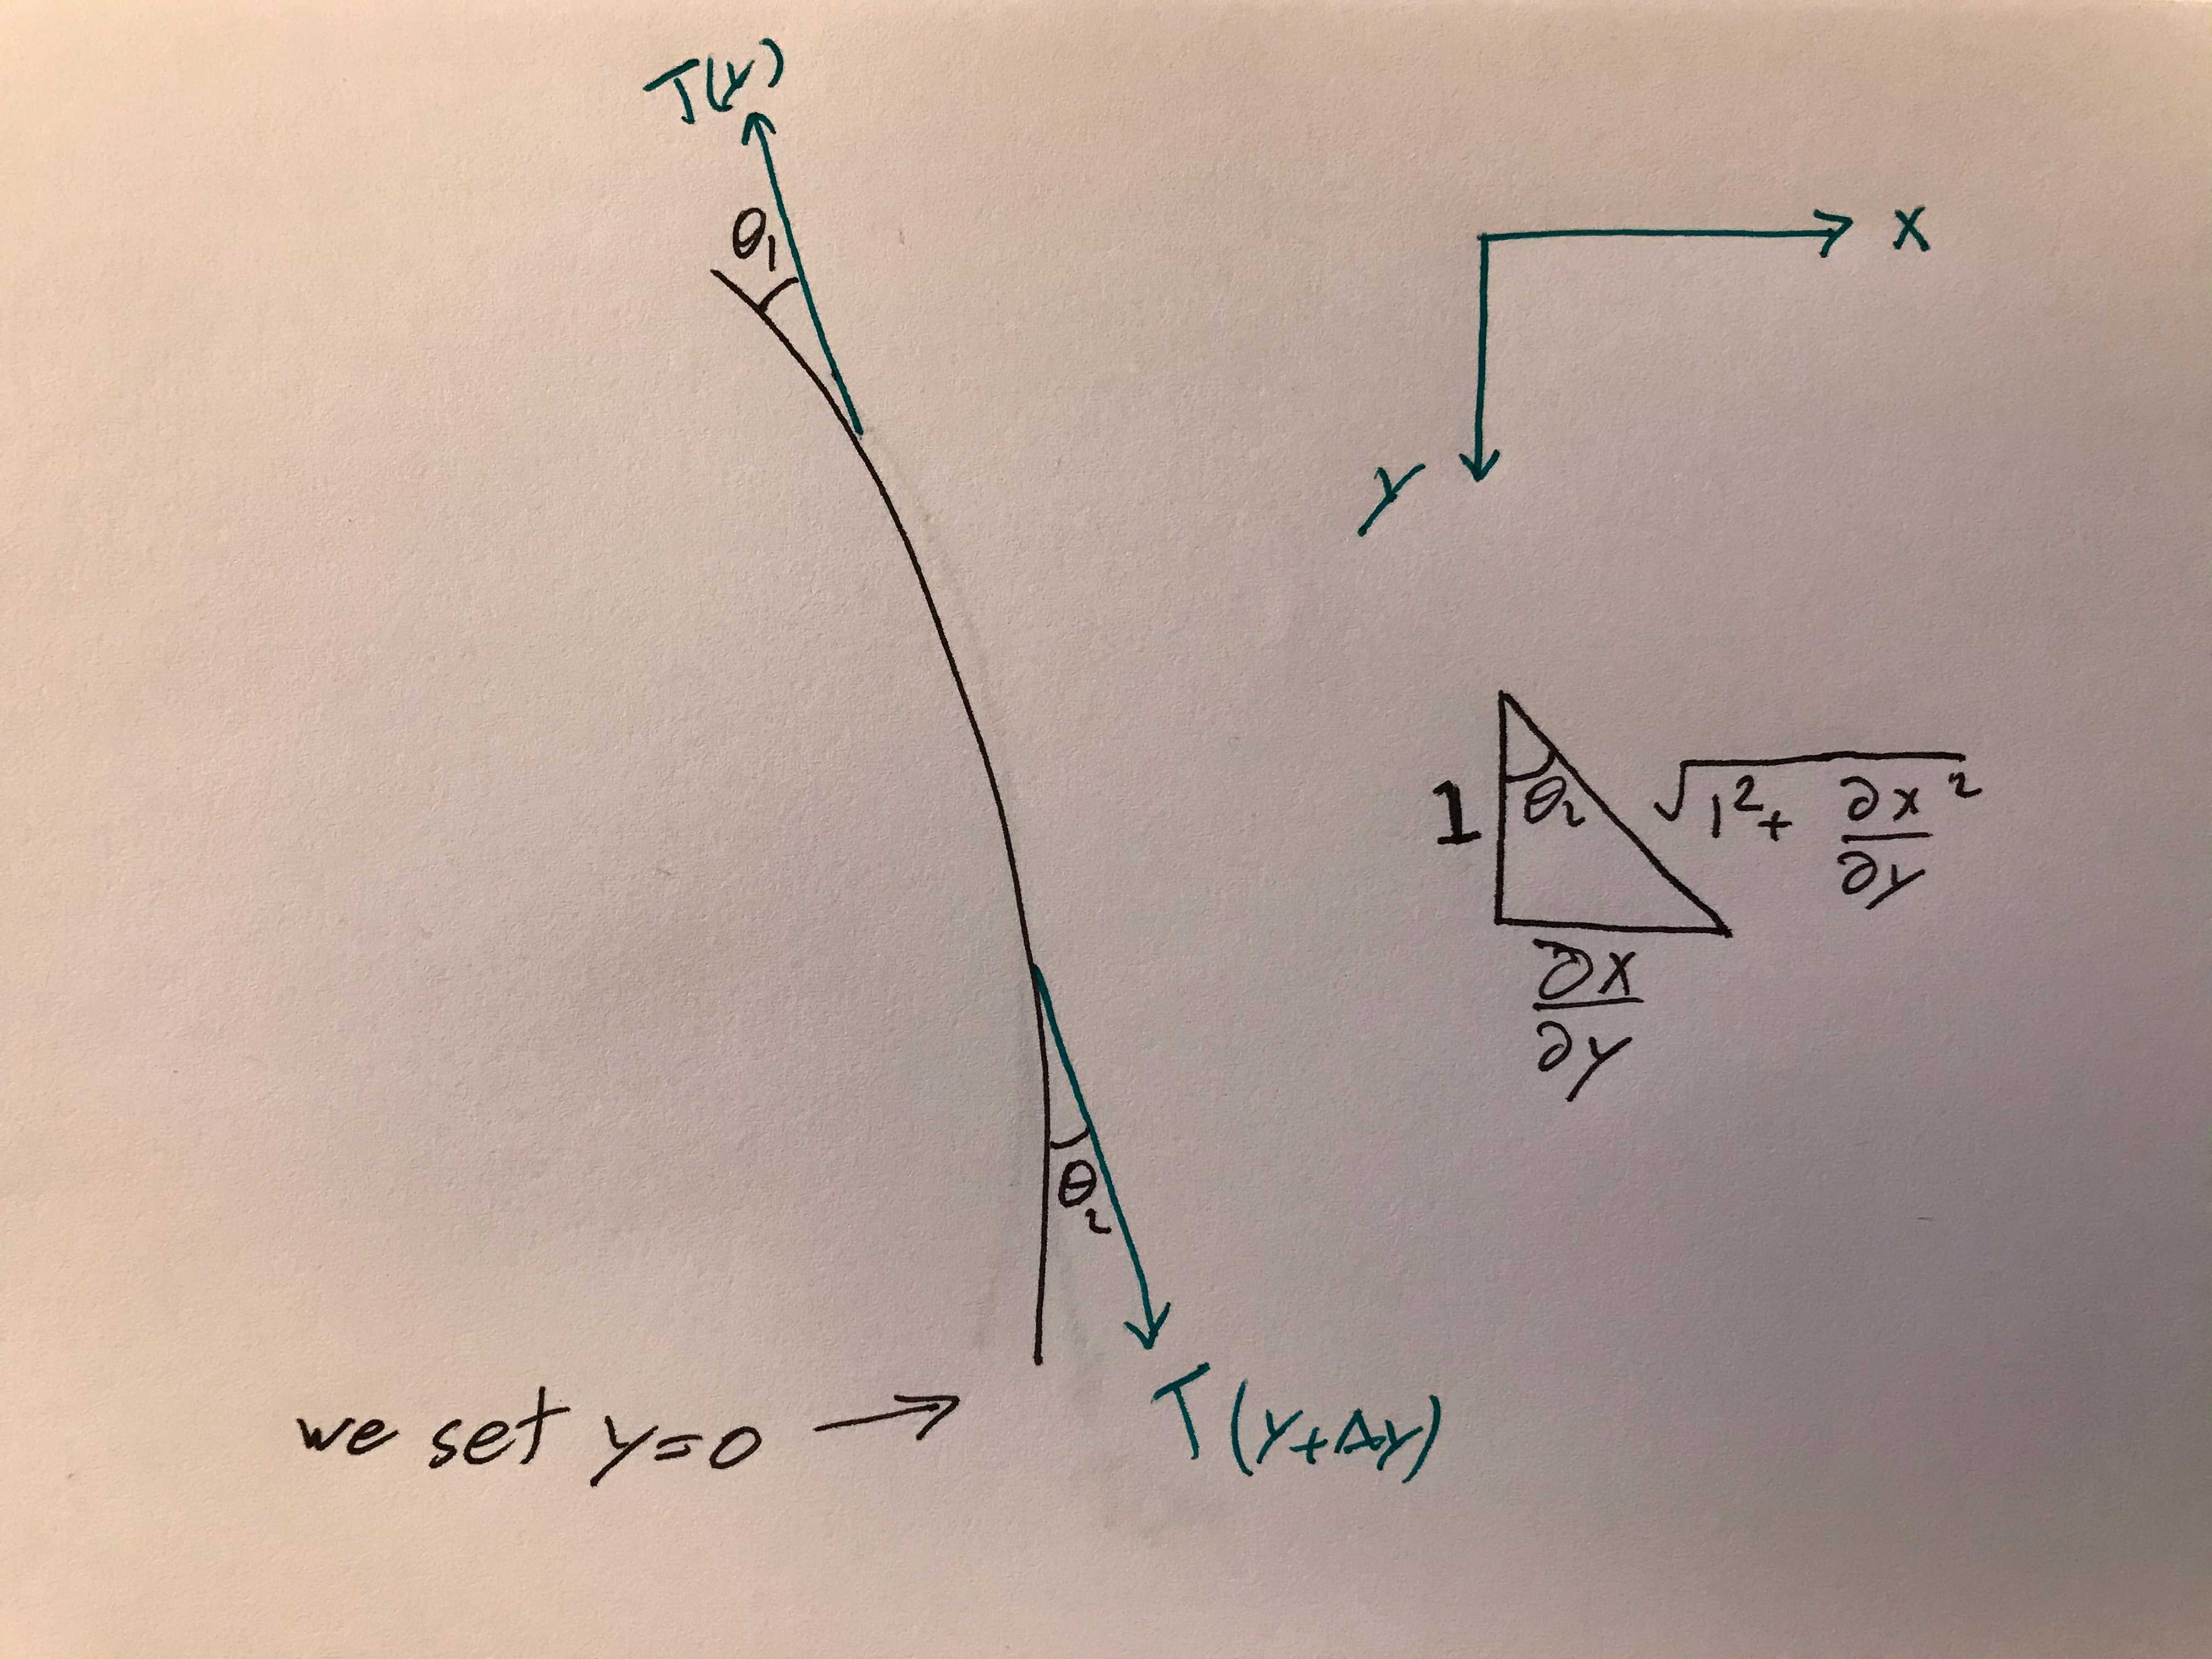 T(y)
θ₁
x
y
1
θ₂
√1² + ∂x²/∂y
∂x/∂y
θ₂
we set y=0 →
T(y+Δy)